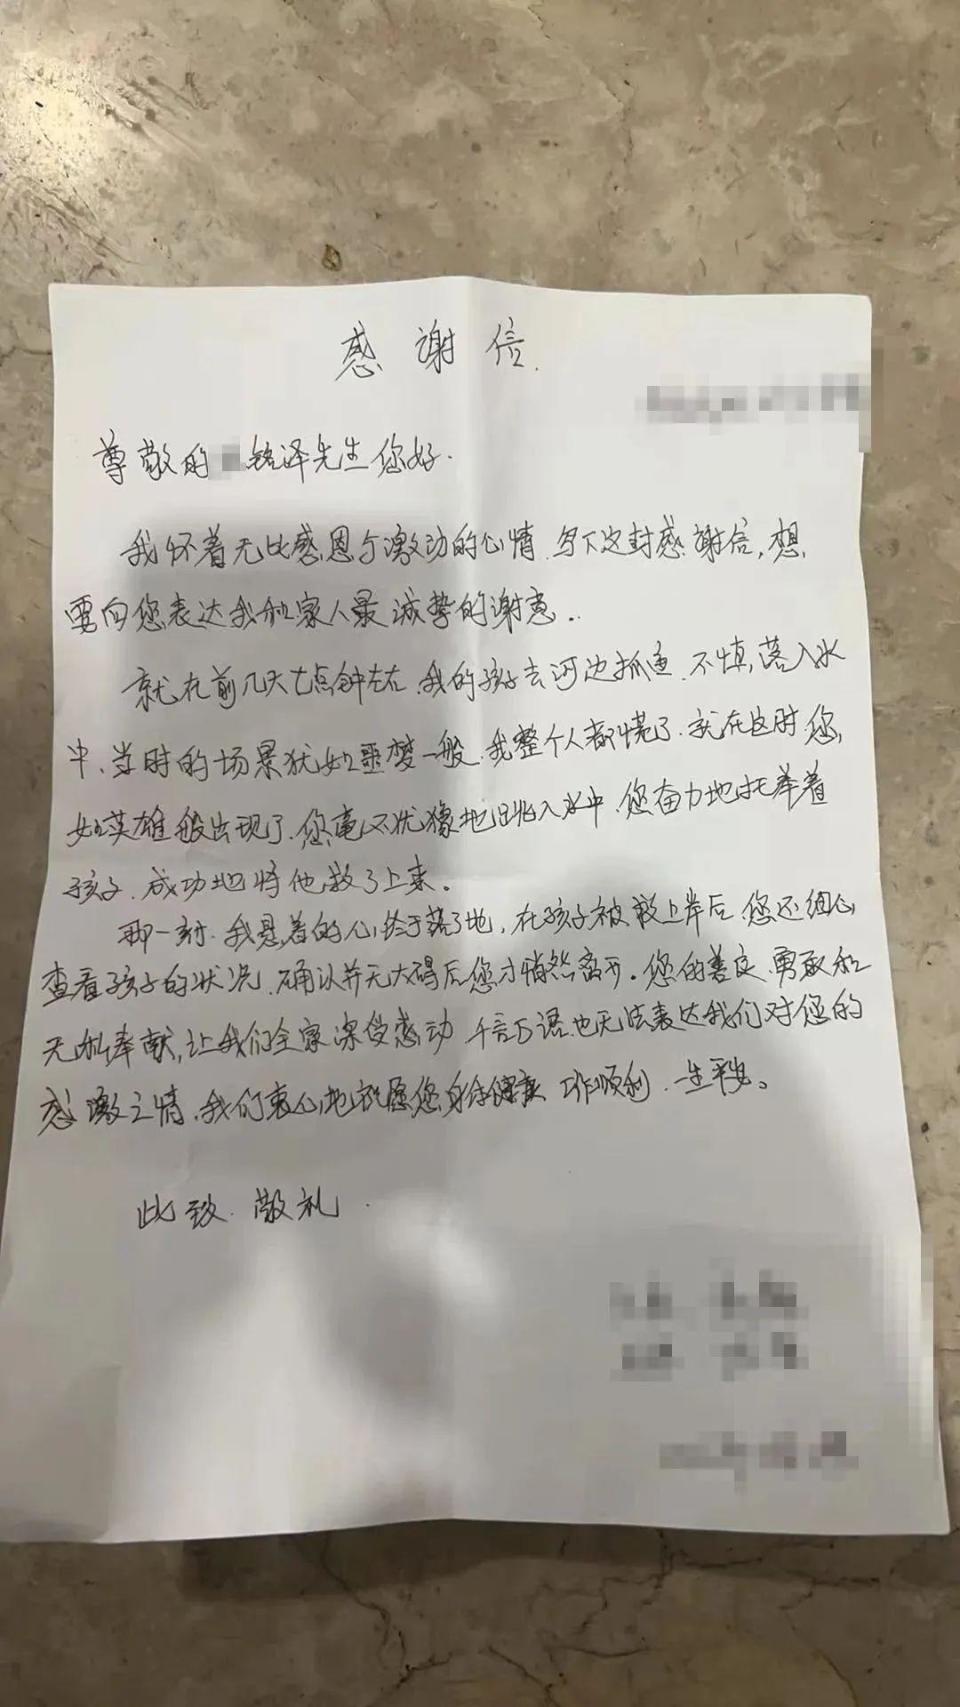 感谢信.
尊敬的铭泽先生您好.
我怀着无比感恩与激动的心情.写下这封感谢信,想,
要向您表达我和家人最诚挚的谢意..
就在前几天七点钟左右.我的孩子去河边抓鱼.不慎,落入水
中、当时的场景犹如噩梦一般.我整个人都慌了.就在这时您,
如英雄般出现了.您毫不犹豫地跳入水中.您奋力地托举着
孩子.成功地将他救了上来。
那一刻.我悬着的心终于落了地,在孩子被救上岸后.您还细心
查看孩子的状况.确认并无大碍后您才悄然离开。您的善良.勇敢和
无私奉献,让我们全家深受感动.千言万语也无法表达我们对您的
感激之情.我们衷心地祝愿您身体健康.工作顺利.一生平安。
此致.敬礼.